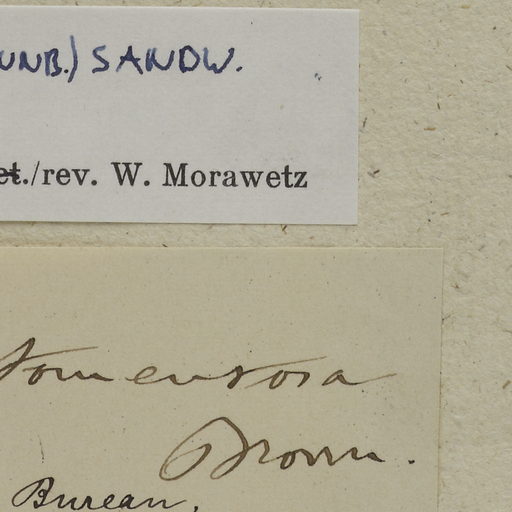 UNB.) SANDW.
et./rev. W. Morawetz
tomentosa
Brown.
Bureau.